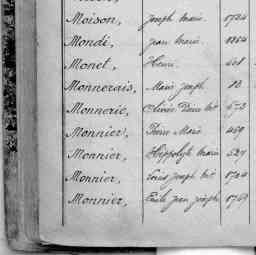 Moison, Joseph Marie 1724
Mondé, Jean Marie 1864
Monet, Henri 401
Monnerais, Marie Joseph 18
Monnerie, Olivier Pierre Me 673
Monnier, Pierre Marie 459
Monnier, Hippolyte Marie 527
Monnier, Louis Joseph Me 1704
Monnier, Emile Jean Joseph 1761